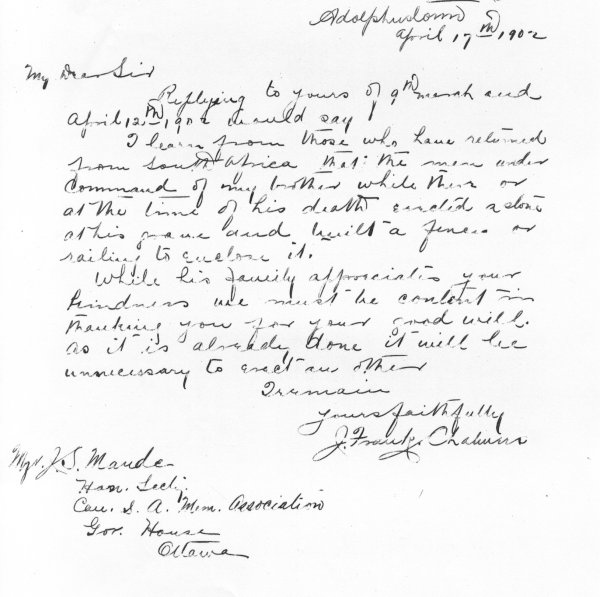 Adolphustown
April 17th 1902
My Dear Sir
Replying to yours of 9th March and
April 12th, 1902 would say
I learn from those who have returned
from South Africa that the men under
Command of my brother while there or
at the time of his death erected a stone
at his grave and built a fence or
railing to enclose it.
While his family appreciates your
kindness we must be content in
thanking you for your good will.
as it is already done it will be
unnecessary to erect an other
I remain
Yours faithfully
J. Frank Chalmers
J. S. Maude
Hon. Secty.
Can. S. A. Mem. Association
Gov. House
Ottawa